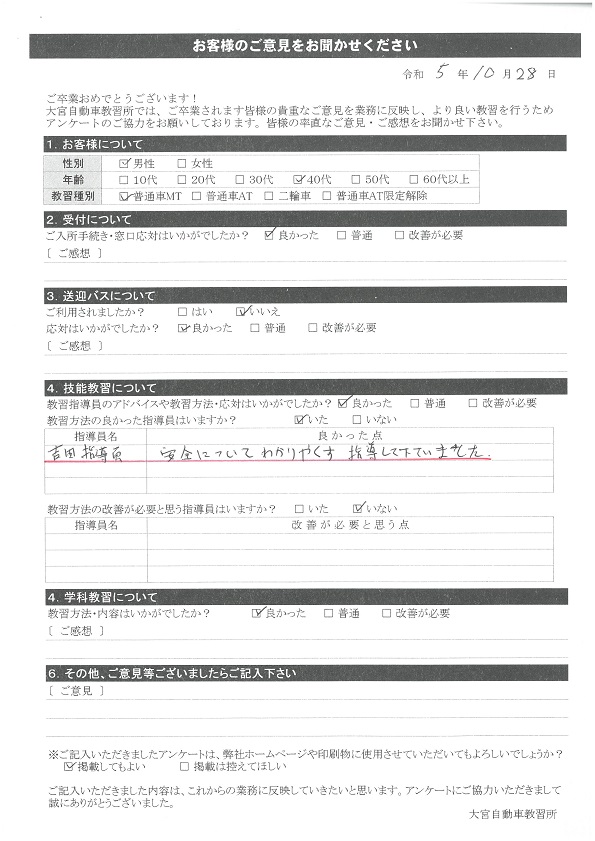 お客様のご意見をお聞かせください
令和 5 年 10 月 28 日
ご卒業おめでとうございます！
大宮自動車教習所では、ご卒業されます皆様の貴重なご意見を業務に反映し、より良い教習を行うため
アンケートのご協力をお願いしております。皆様の率直なご意見・ご感想をお聞かせ下さい。
1. お客様について
性別 ☑男性 □女性
年齢 □10代 □20代 □30代 ☑40代 □50代 □60代以上
教習種別 ☑普通車MT □普通車AT □二輪車 □普通車AT限定解除
2. 受付について
ご入所手続き・窓口応対はいかがでしたか？ ☑良かった □普通 □改善が必要
［ ご感想 ］
3. 送迎バスについて
ご利用されましたか？ □はい ☑いいえ
応対はいかがでしたか？ ☑良かった □普通 □改善が必要
［ ご感想 ］
4. 技能教習について
教習指導員のアドバイスや教習方法・応対はいかがでしたか？ ☑良かった □普通 □改善が必要
教習方法の良かった指導員はいますか？ ☑いた □いない
指導員名 良かった点
吉田指導員 安全についてわかりやくす 指導して下ていました。
教習方法の改善が必要と思う指導員はいますか？ □いた ☑いない
指導員名 改善が必要と思う点
4. 学科教習について
教習方法・内容はいかがでしたか？ ☑良かった □普通 □改善が必要
［ ご感想 ］
6. その他、ご意見等ございましたらご記入下さい
［ ご意見 ］
※ご記入いただきましたアンケートは、弊社ホームページや印刷物に使用させていただいてもよろしいでしょうか？
☑掲載してもよい □掲載は控えてほしい
ご記入いただきました内容は、これからの業務に反映していきたいと思います。アンケートにご協力いただきまして
誠にありがとうございました。
大宮自動車教習所